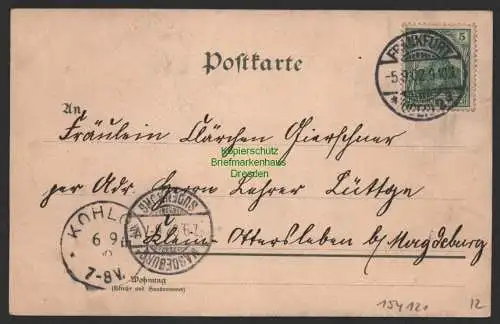 Postkarte
5
FRANKFURT
-5.9.02.9-10V.
An
Fräulein Clärchen Gierschner
Kopierschutz
Briefmarkenhaus
Dresden
per Adr. Herrn Lehrer Lüttge
KOHLO
6 9
7-8V.
MAGDEBURG
SUDENBURG
Klein-Ottersleben b/ Magdeburg
Wohnung
(Straße und Hausnummer)
154 121
12